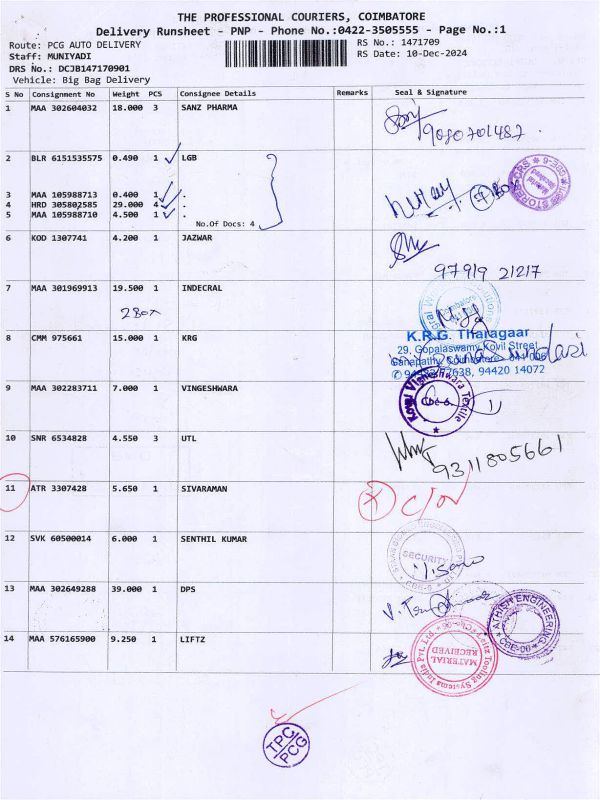 THE PROFESSIONAL COURIERS, COIMBATORE
Delivery Runsheet - PNP - Phone No.:0422-3505555 - Page No.:1
Route: PCG AUTO DELIVERY
RS No.: 1471709
Staff: MUNIYADI
RS Date: 10-Dec-2024
DRS No.: DCJB147170901
Vehicle: Big Bag Delivery
S No Consignment No Weight PCS Consignee Details Remarks Seal & Signature
1 MAA 302604032 18.000 3 SANZ PHARMA
9080701487
2 BLR 6151535575 0.490 1 LGB
3 MAA 105988713 0.400 1 .
4 HRD 305802585 29.000 4 .
5 MAA 105988710 4.500 1 .
No.Of Docs: 4
6 KOD 1307741 4.200 1 JAZWAR
97919 21217
7 MAA 301969913 19.500 1 INDECRAL
8 CMM 975661 15.000 1 KRG
K.R.G. Tharagaar
29, Gopalaswamy Kovil Street,
Ganapathy, Coimbatore - 641 006
94420 14072
9 MAA 302283711 7.000 1 VINGESHWARA
Kovai Vigneshwara Textile
CBE-6.
10 SNR 6534828 4.550 3 UTL
9311805661
11 ATR 3307428 5.650 1 SIVARAMAN
12 SVK 60500014 6.000 1 SENTHIL KUMAR
SECURITY
13 MAA 302649288 39.000 1 DPS
ATHISH ENGINEERING
CBE-06
14 MAA 576165900 9.250 1 LIFTZ
MATERIAL
RECEIVED
TPC
PCG